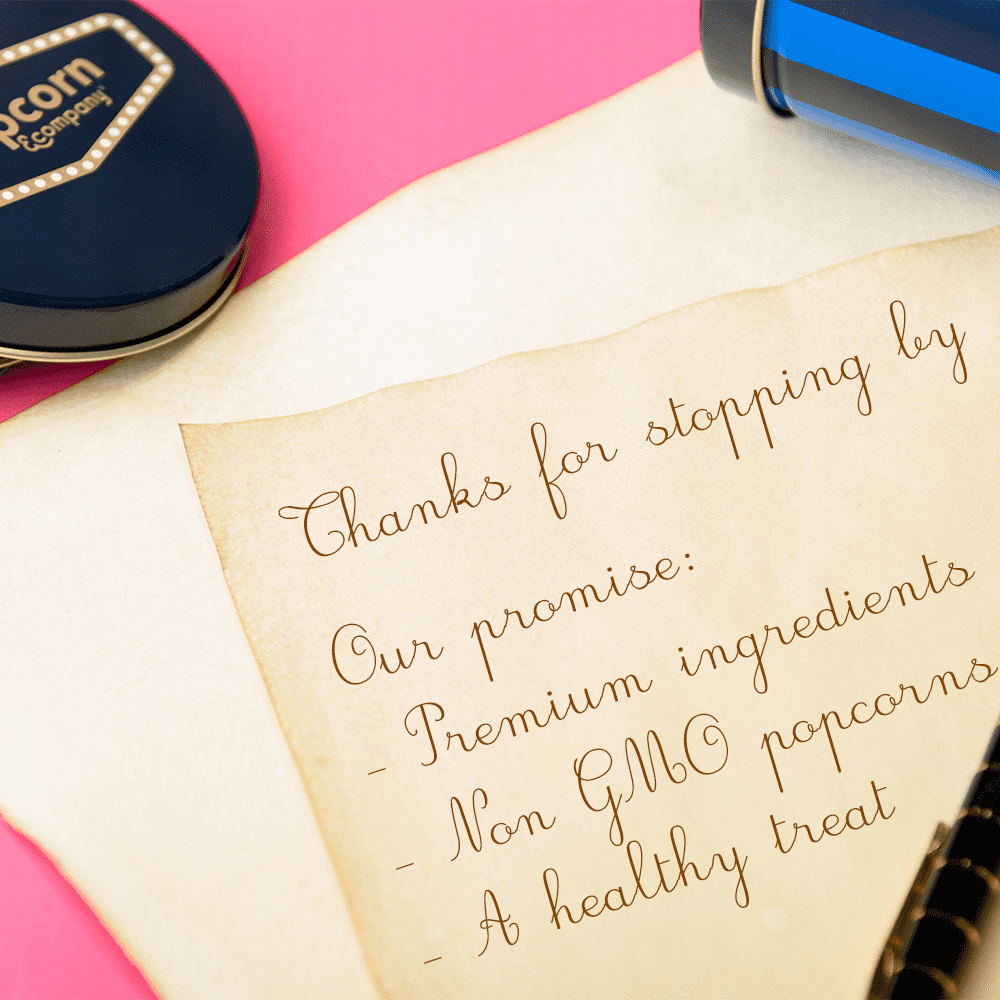 pcorn
&company
Thanks for stopping by
Our promise:
- Premium ingredients
- Non GMO popcorns
- A healthy treat